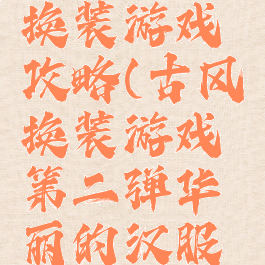 换装游戏
攻略(古风
换装游戏
第二弹华
丽的汉服